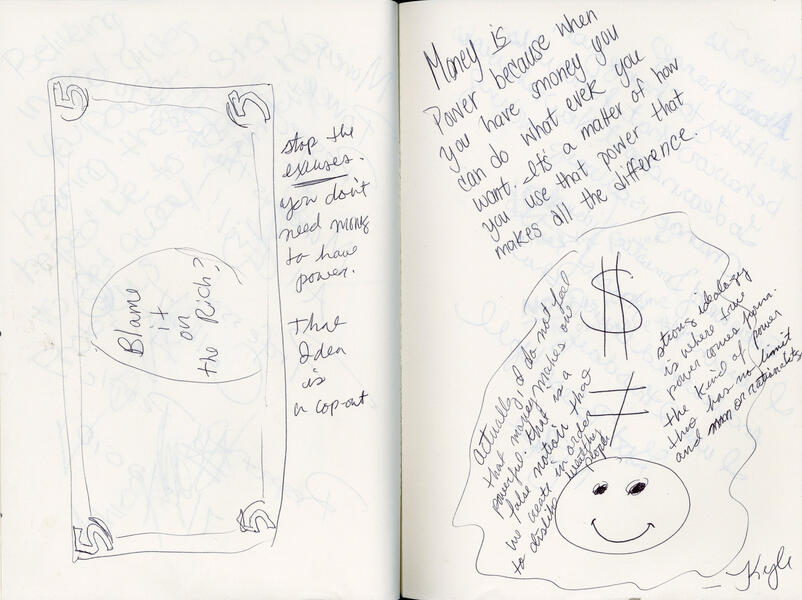 5
5
Blame
it
on
the Rich?
5
5
stop the
excuses.
you don't
need money
to have
power.
that
Idea
is
a cop-out
Money is
Power because when
you have money you
can do what ever you
want. It's a matter of how
you use that power that
makes all the difference.
$
≠
Actually, I do not feel
that money makes one
powerful. that is a
false notion that
we create in order
to dislike wealthy
people
strong ideology
is where true
power comes from.
the kind of power
that has no limit
and man or rationality
- Kyle